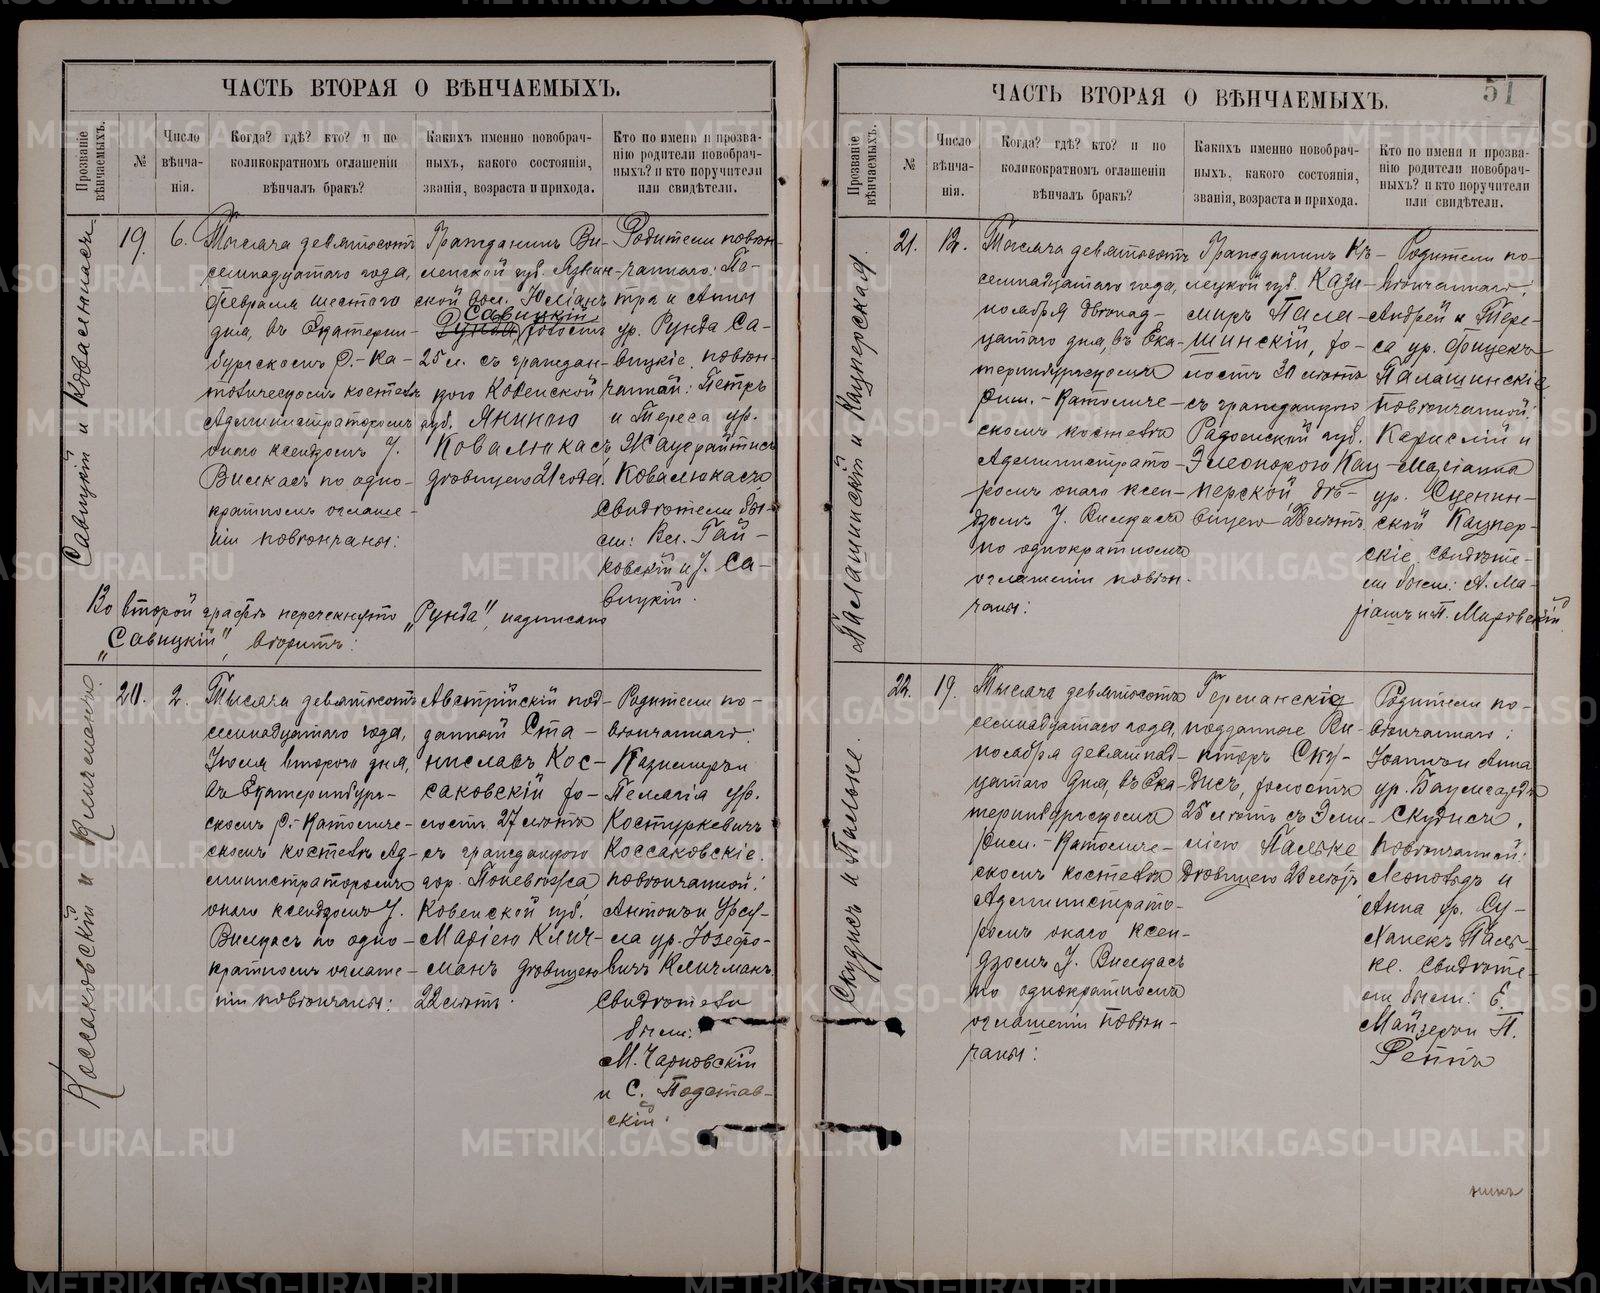 ЧАСТЬ ВТОРАЯ О ВѢНЧАЕМЫХЪ.
Прозваніе вѣнчаемыхъ.
№
Число
вѣнча-
нія.
Когда? гдѣ? кто? и по
коликократномъ оглашеніи
вѣнчалъ бракъ?
Какихъ именно новобрач-
ныхъ, какого состоянія,
званія, возраста и прихода.
Кто по имени и прозва-
нію родители новобрач-
ныхъ? и кто поручители
или свидѣтели.
Савицкій и Ковалюкасъ
19.
6.
Тысяча девятьсотъ
семнадцатаго года,
Февраля шестаго
дня, въ Екатерин-
бургскомъ Р.-Ка-
толическомъ костелѣ
Администраторомъ
онаго ксендзомъ І.
Вилкасъ по одно-
кратномъ оглаше-
ніи повѣнчаны:
Гражданинъ Ви-
ленской губ. Язвин-
ской вол. Юліанъ
Савицкій
Рунда, холостъ
25 л. съ граждан-
кою Ковенской
губ. Яниною
Ковалюкасъ,
дѣвицею 21 года.
Родители повѣн-
чаннаго: Пе-
тръ и Анны
ур. Рунда Са-
вицкіе, повѣн-
чанной: Петръ
и Тереса ур.
Жаудрайтисъ
Ковалюкасъ
Свидѣтели бы-
ли: Вл. Гай-
ковскій и І. Са-
вицкій.
Во второй графѣ перечекнуто „Рунда", надписано
„Савицкій", вѣрить:
Коссаковскій и Кличманъ.
20.
2.
Тысяча девятьсотъ
семнадцатаго года,
Іюля второго дня,
въ Екатеринбург-
скомъ Р.-Католиче-
скомъ костелѣ Ад-
министраторомъ
онаго ксендзомъ І.
Вилкасъ по одно-
кратномъ оглаше-
ніи повѣнчаны:
Австрійскій под-
данный Ста-
ниславъ Кос-
саковскій хо-
лостъ 27 лѣтъ
съ гражданкою
гор. Поневѣжа,
Ковенской губ.
Маріею Клич-
манъ дѣвицею
22 лѣтъ.
Родители по-
вѣнчаннаго:
Казимиръ и
Пелагія ур.
Костуркевичъ
Коссаковскіе.
повѣнчанной:
Антонъ и Урсу-
ла ур. Іозефо-
вичъ Кличманъ.
Свидѣтели
были:
М. Чарновскій
и С. Подстав-
скій.
ЧАСТЬ ВТОРАЯ О ВѢНЧАЕМЫХЪ.
51
Прозваніе вѣнчаемыхъ.
№
Число
вѣнча-
нія.
Когда? гдѣ? кто? и по
коликократномъ оглашеніи
вѣнчалъ бракъ?
Какихъ именно новобрач-
ныхъ, какого состоянія,
званія, возраста и прихода.
Кто по имени и прозва-
нію родители новобрач-
ныхъ? и кто поручители
или свидѣтели.
Палашинскій и Кацперская.
21.
12.
Тысяча девятьсотъ
семнадцатаго года,
ноября двѣнад-
цатаго дня, въ Ека-
теринбургскомъ
Рим.-Католиче-
скомъ костелѣ
Администрато-
ромъ онаго ксен-
дзомъ І. Вилкасъ
по однократномъ
оглашеніи повѣн-
чаны:
Гражданинъ Кѣ-
лецкой губ. Кази-
миръ Пала-
шинскій, хо-
лостъ 30 лѣтъ
съ гражданкою
Радомской губ.
Элеонорою Кац-
перской, дѣ-
вицею 28 лѣтъ.
Родители по-
вѣнчаннаго:
Андрей и Тере-
са ур. Фицекъ
Палашинскіе
Повѣнчанной:
Карпелій и
Маріанна
ур. Оценин-
ской Кацпер-
скіе, свидѣте-
ли были: А. Ма-
рашъ и П. Мировскій.
Скудисъ и Пальке.
22.
19.
Тысяча девятьсотъ
семнадцатаго года,
ноября девятнад-
цатаго дня, въ Ека-
теринбургскомъ
Рим.-Католиче-
скомъ костелѣ
Администрато-
ромъ онаго ксен-
дзомъ І. Вилкасъ
по однократномъ
оглашеніи повѣн-
чаны:
Германскіе
подданные Ви-
кторъ Ску-
дисъ, холостъ
25 лѣтъ съ Эми-
ліею Пальке
дѣвицею 23 лѣтъ.
Родители по-
вѣнчаннаго:
Іоаннъ и Анна
ур. Баумгардъ
Скудисъ,
повѣнчанной:
Леопольдъ и
Анна ур. Су-
халекъ Паль-
ке. Свидѣте-
ли были: Е.
Майзеръ и П.
Реппъ